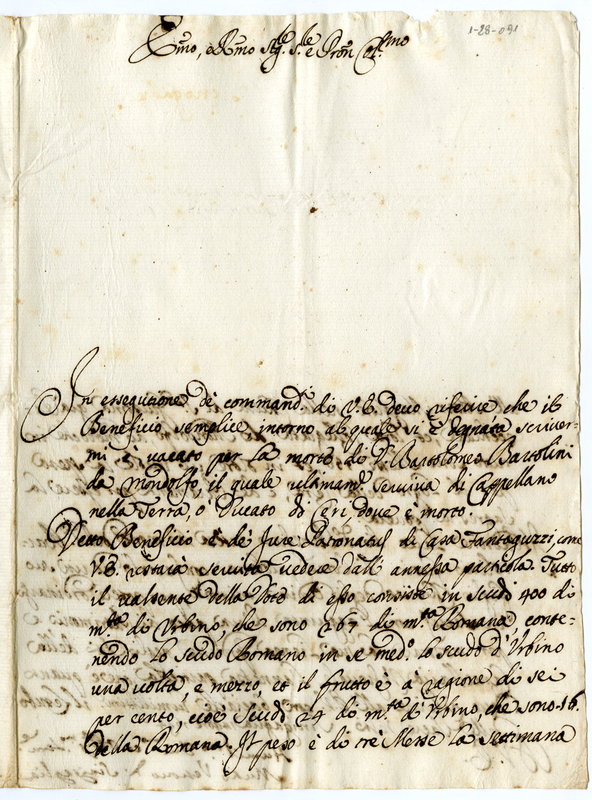 1-28-091
Emo, e Rmo Sig.re S.re e Pron Col.mo
In essecutione de command.i di V.E. devo riferire che il
Beneficio semplice intorno al quale si è degnata scriver-
mi è vacato per la morte di D. Bartolomeo Bartolini
da Mondolfo, il quale ultimam.te serviva di Cappellano
nella Terra, o Ducato di Ceri dove è morto.
Detto Beneficio è de Jure Patronatus di Casa Fantaguzzi, come
V.E. restarà servita vedere dall' annessa particola. Tutto
il valsente della Dote di esso consiste in scudi 400 di
m.ta di Urbino, che sono 267 di m.ta Romana conte-
nendo lo scudo Romano in se med.o lo scudo d'Urbino
una volta, e mezzo, et il frutto è à ragione di sei
per cento, cioè scudi 24 di m.ta di Urbino, che sono 16.
della Romana. Il peso è di tre Messe la settimana